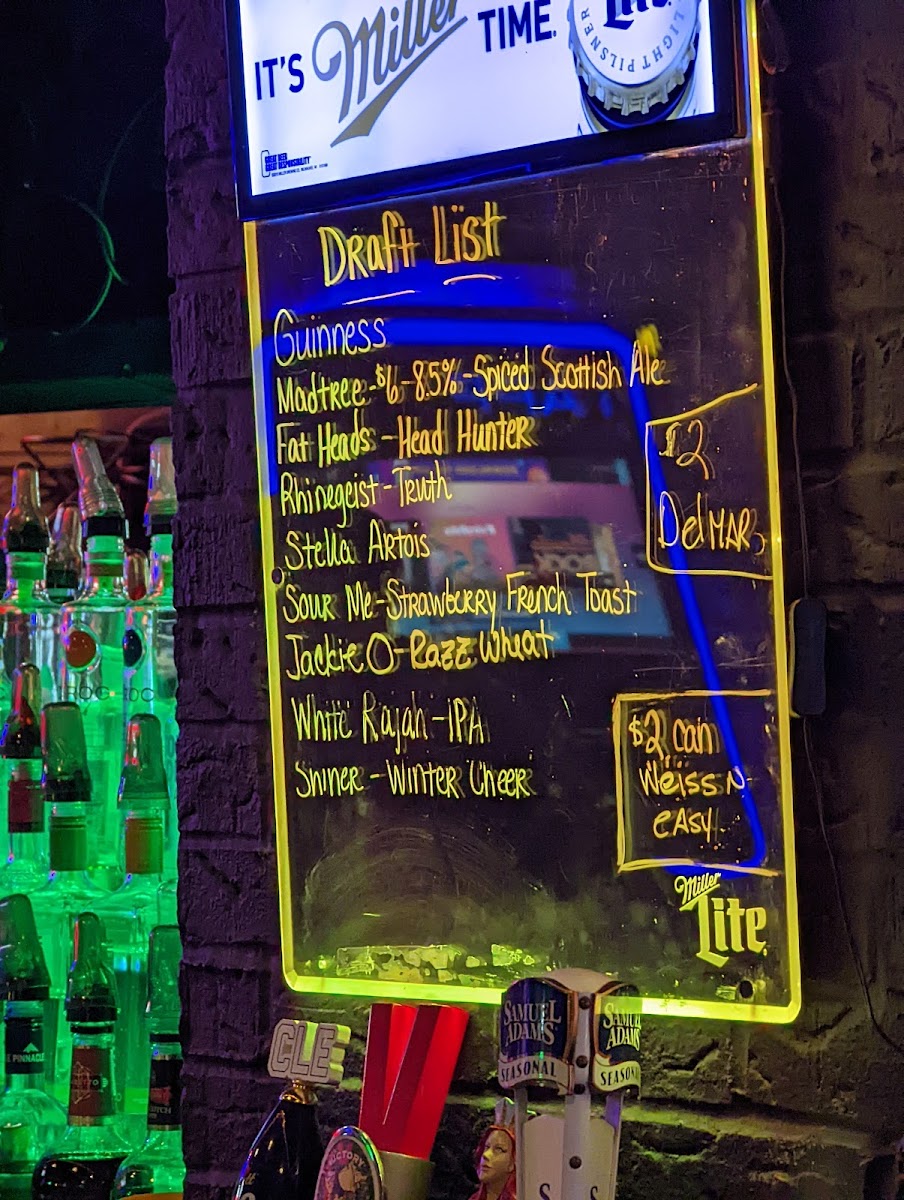 IT'S Miller TIME.
Lite
LIGHT PILSNER
GREAT BEER
GREAT RESPONSIBILITY
Draft List
Guinness
Madtree-$6-8.5%-Spiced Scottish Ale
Fat Heads-Head Hunter
Rhinegeist-Truth
Stella Artois
Sour Me-Strawberry French Toast
Jackie O-Razz Wheat
White Rajah-IPA
Shiner-Winter Cheer
$2
Delmar
$2 can
Weiss N
easy
Miller
Lite
CLE
SAMUEL
ADAMS
SEASONAL
SAMUEL
ADAMS
SEASONAL
VICTORY
PINNACLE